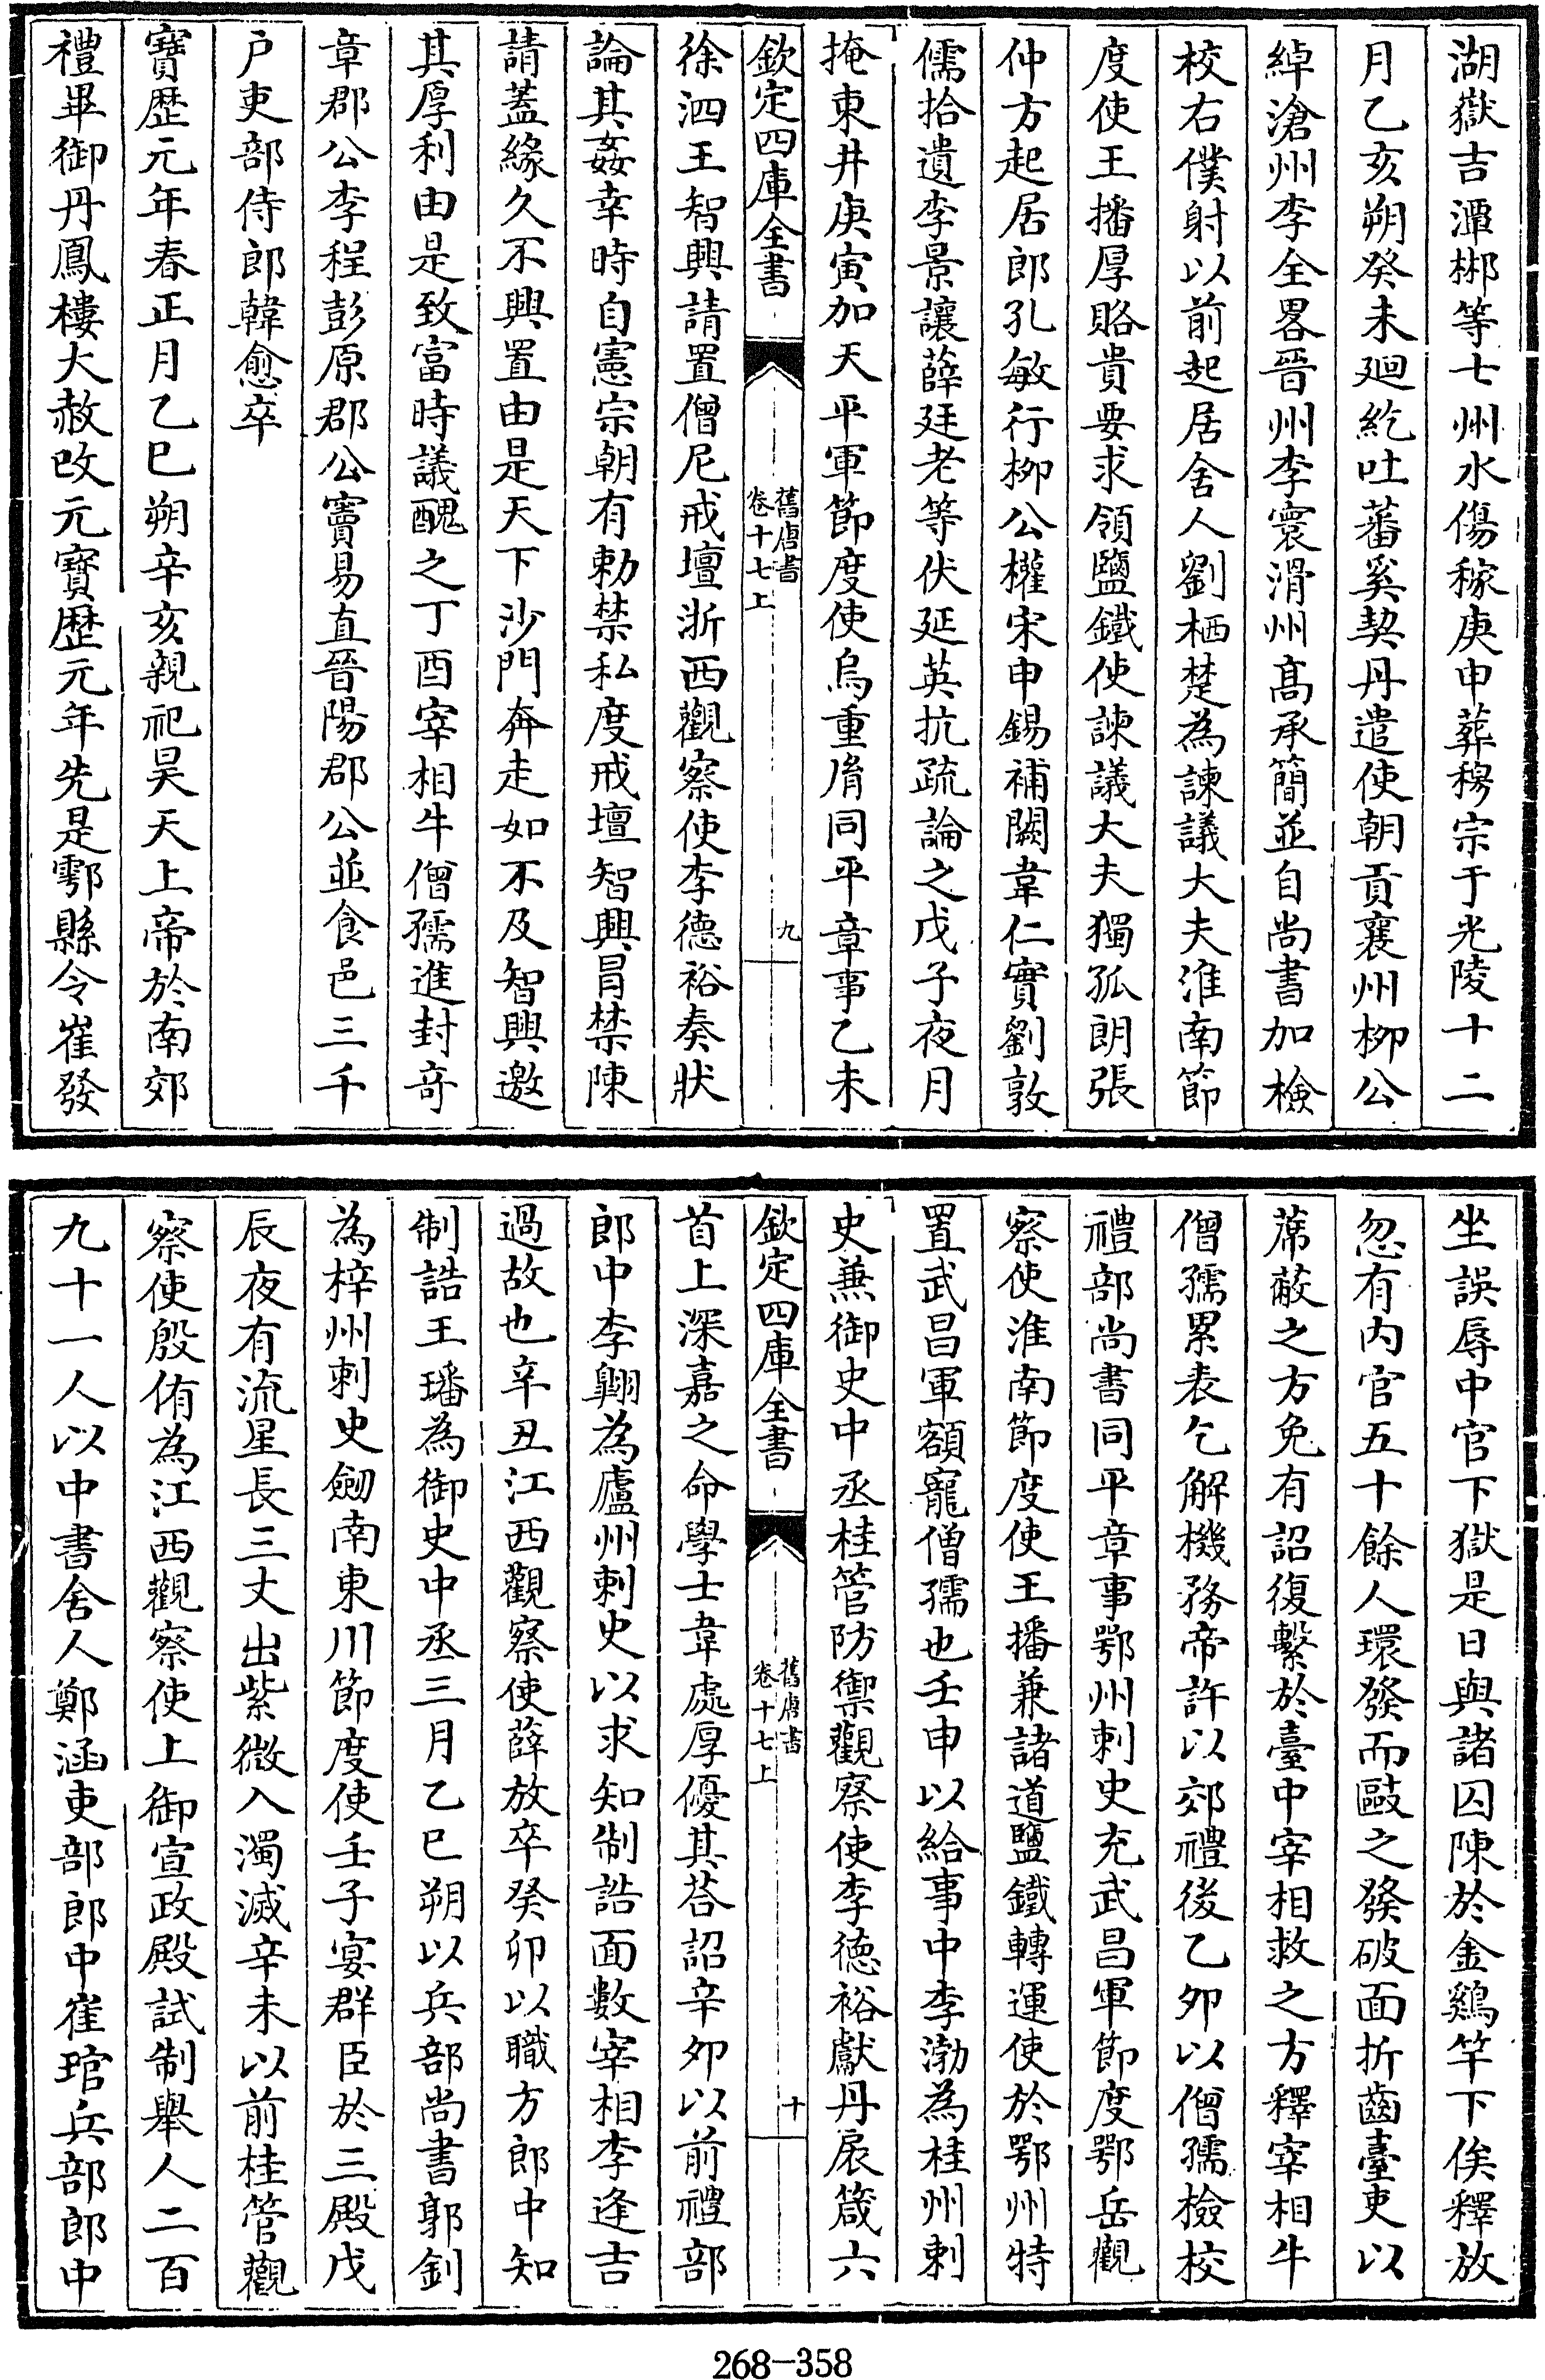 湖嶽吉潭郴等七州水傷稼庚申葬穆宗于光陵十二
月乙亥朔癸未廻紇吐蕃奚契丹遣使朝貢襄州柳公
綽滄州李全畧晉州李寰滑州髙承簡並自尚書加檢
校右僕射以前起居舍人劉栖楚為諫議大夫淮南節
度使王播厚賂貴要求領鹽鐵使諫議大夫獨孤朗張
仲方起居郎孔敏行栁公權宋申錫補闕韋仁實劉敦
儒拾遺李景讓薛廷老等伏延英抗疏論之戊子夜月
掩東井庚寅加天平軍節度使烏重胤同平章事乙未
欽定四庫全書
舊唐書
卷十七上
九
徐泗王智興請置僧尼戒壇浙西觀察使李德裕奏狀
論其姦幸時自憲宗朝有勅禁私度戒壇智興冐禁陳
請蓋緣久不興置由是天下沙門奔走如不及智興邀
其厚利由是致富時議醜之丁酉宰相牛僧孺進封竒
章郡公李程彭原郡公竇易直晉陽郡公並食邑三千
户吏部侍郎韓愈卒
寶歴元年春正月乙巳朔辛亥親祀昊天上帝於南郊
禮畢御丹鳳樓大赦改元寶歴元年先是鄠縣令崔發
坐誤辱中官下獄是日與諸囚陳於金鷄竿下俟釋放
忽有内官五十餘人環發而毆之發破面折齒臺吏以
蓆蔽之方免有詔復繫於臺中宰相救之方釋宰相牛
僧孺累表乞解機務帝許以郊禮後乙夘以僧孺檢校
禮部尚書同平章事鄂州刺史充武昌軍節度鄂岳觀
察使淮南節度使王播兼諸道鹽鐵轉運使於鄂州特
置武昌軍額寵僧孺也壬申以給事中李渤為桂州刺
史兼御史中丞桂管防禦觀察使李德裕獻丹扆箴六
欽定四庫全書
舊唐書
卷十七上
十
首上深嘉之命學士韋處厚優其荅詔辛夘以前禮部
郎中李翺為廬州刺史以求知制誥面數宰相李逢吉
過故也辛丑江西觀察使薛放卒癸卯以職方郎中知
制誥王璠為御史中丞三月乙巳朔以兵部尚書郭釗
為梓州刺史劔南東川節度使壬子宴群臣於三殿戊
辰夜有流星長三丈出紫微入濁滅辛未以前桂管觀
察使殷侑為江西觀察使上御宣政殿試制舉人二百
九十一人以中書舍人鄭涵吏部郎中崔琯兵部郎中
268-358